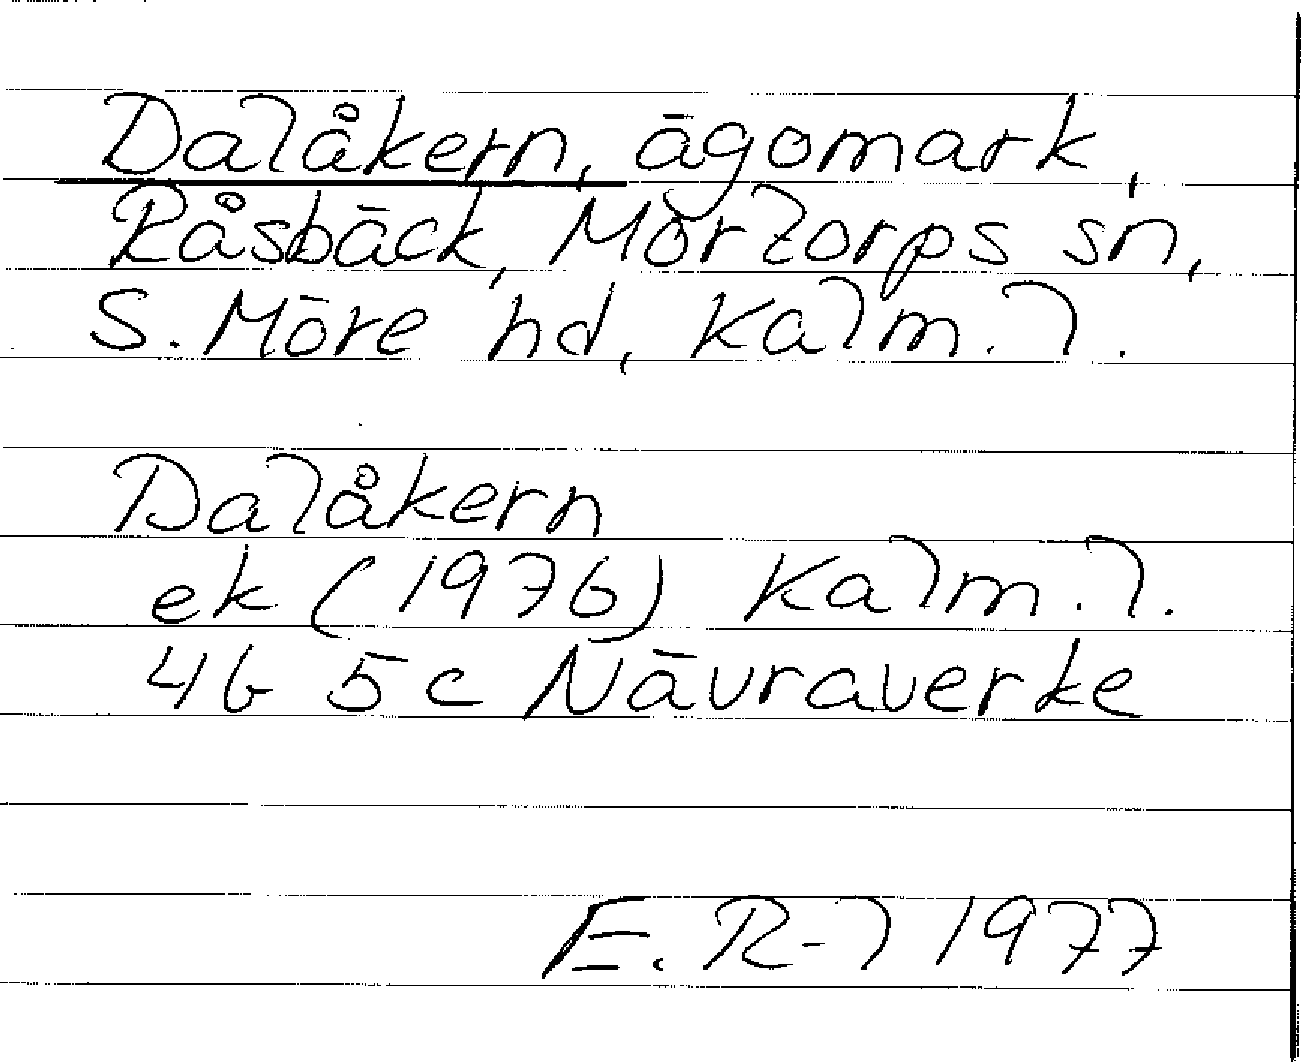 Dalåkern, ägomark,
Råsbäck, Mortorps sn,
S. Möre hd, Kalm. l.
Dalåkern
ek (1976) Kalm. l.
4G 5c Nävraverke
E. R-l 1977